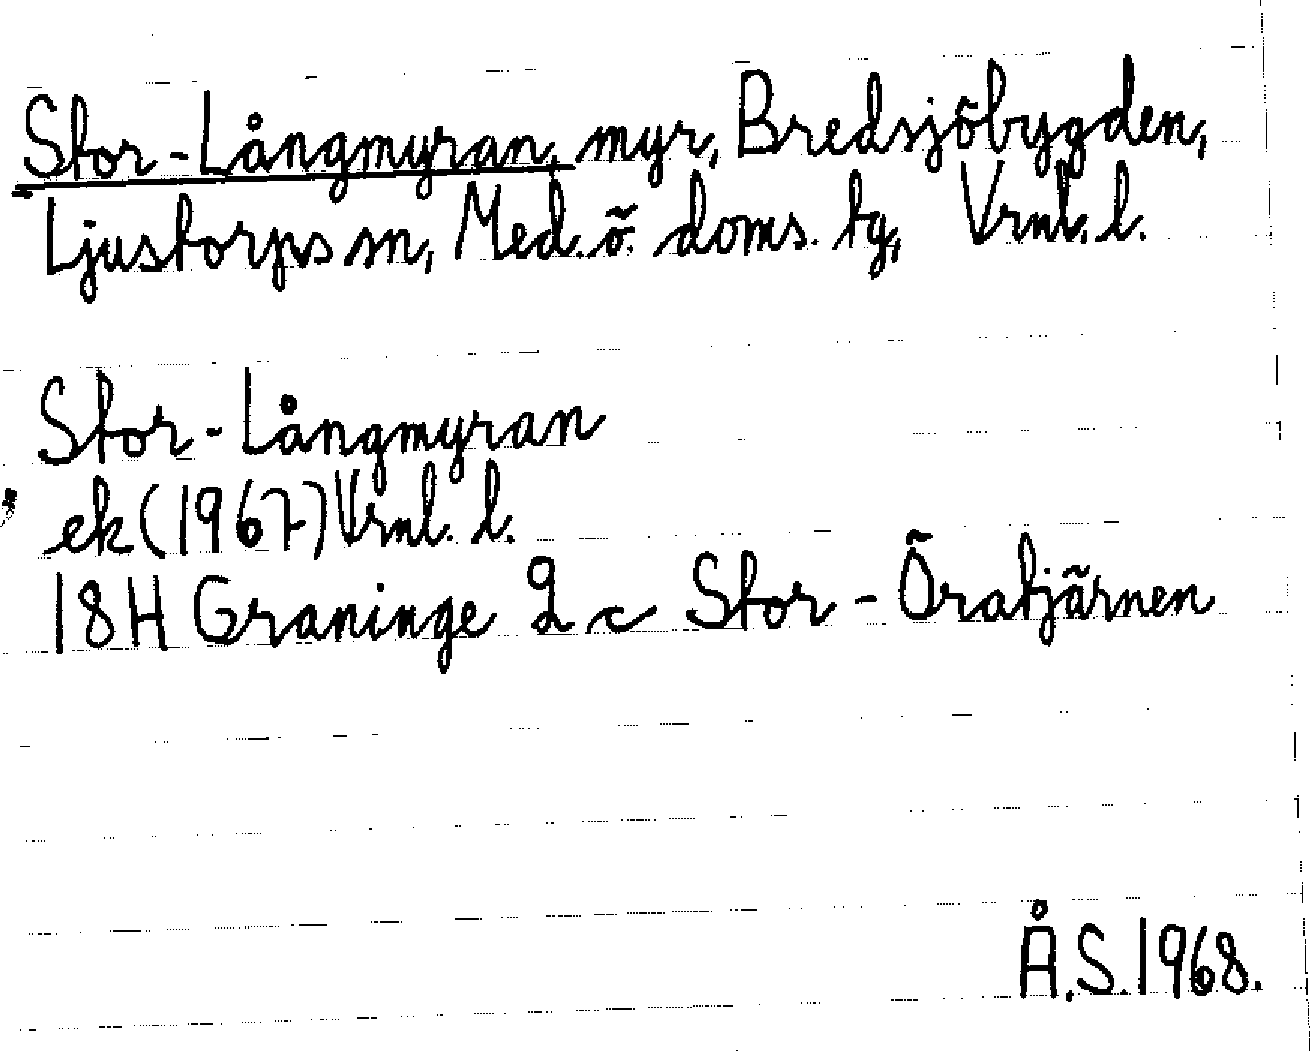 Stor-Långmyran, myr, Bredsjöbygden,
Ljustorps sn, Med. ö. doms. tg, Vrnl. l.
Stor-Långmyran
ek (1967) Vrnl. l.
18H Graninge 2 c Stor-Öratjärnen
Å.S. 1968.